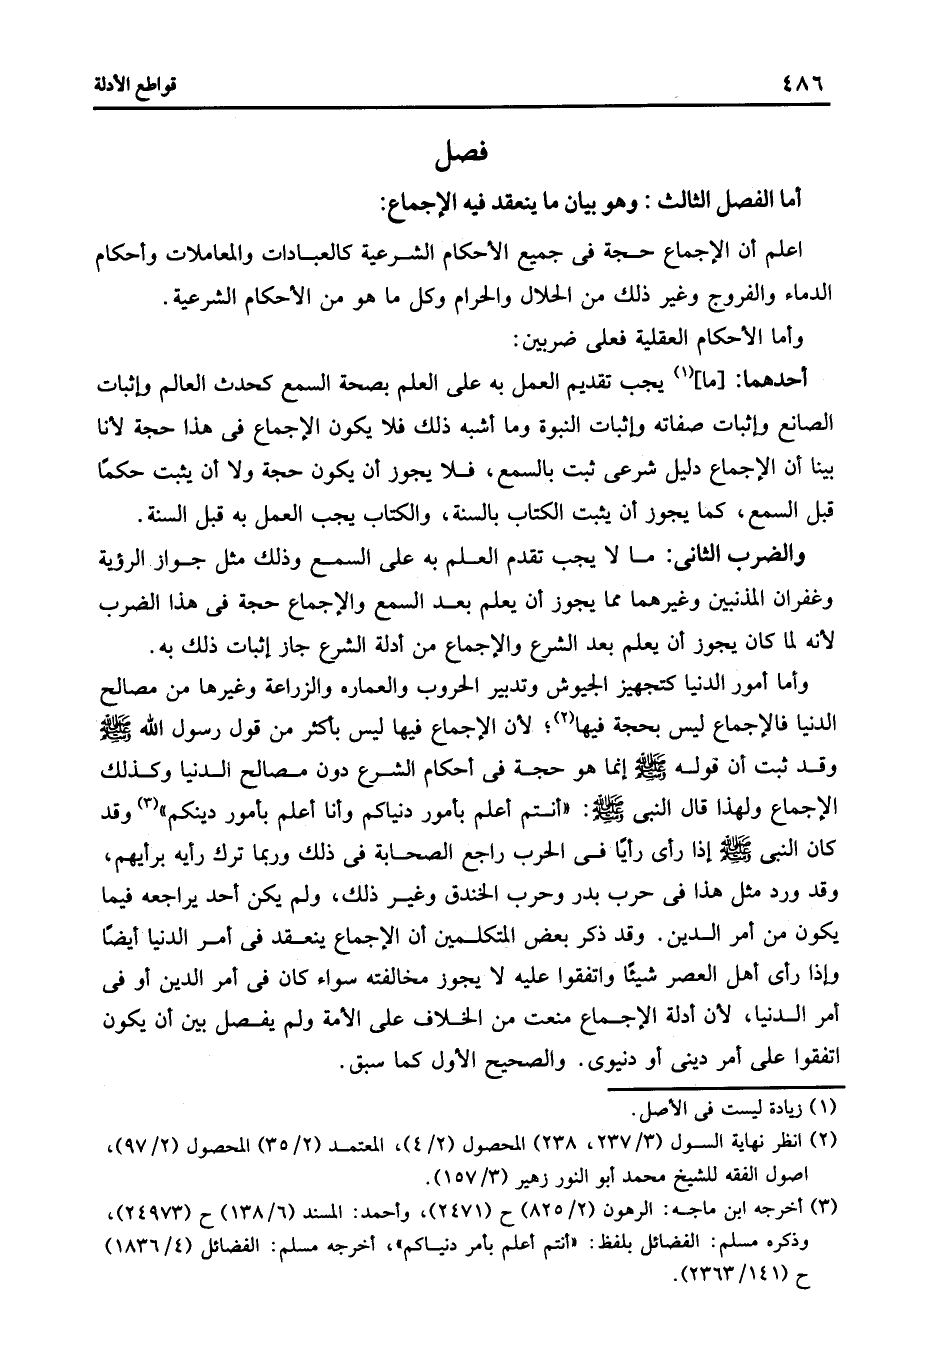 ٤٨٦
قواطع الأدلة
فصل
أما الفصل الثالث : وهو بيان ما ينعقد فيه الإجماع:
اعلم أن الإجماع حجة فى جميع الأحكام الشرعية كالعبادات والمعاملات وأحكام
الدماء والفروج وغير ذلك من الحلال والحرام وكل ما هو من الأحكام الشرعية .
وأما الأحكام العقلية فعلى ضربين:
أحدهما: [ما](١) يجب تقديم العمل به على العلم بصحة السمع كحدث العالم وإثبات
الصانع وإثبات صفاته وإثبات النبوة وما أشبه ذلك فلا يكون الإجماع فى هذا حجة لأنا
بينا أن الإجماع دليل شرعى ثبت بالسمع، فلا يجوز أن يكون حجة ولا أن يثبت حكمًا
قبل السمع، كما يجوز أن يثبت الكتاب بالسنة، والكتاب يجب العمل به قبل السنة.
والضرب الثانى: ما لا يجب تقدم العلم به على السمع وذلك مثل جواز الرؤية
وغفران المذنبين وغيرهما مما يجوز أن يعلم بعد السمع والإجماع حجة فى هذا الضرب
لأنه لما كان يجوز أن يعلم بعد الشرع والإجماع من أدلة الشرع جاز إثبات ذلك به .
وأما أمور الدنيا كتجهيز الجيوش وتدبير الحروب والعماره والزراعة وغيرها من مصالح
الدنيا فالإجماع ليس بحجة فيها(٢)؛ لأن الإجماع فيها ليس بأكثر من قول رسول الله ﷺ
وقد ثبت أن قوله ﷺ إنما هو حجة فى أحكام الشرع دون مصالح الدنيا وكذلك
الإجماع ولهذا قال النبى ﷺ: «أنتم أعلم بأمور دنياكم وأنا أعلم بأمور دينكم»(٣) وقد
كان النبى ﷺ إذا رأى رأيًا فى الحرب راجع الصحابة فى ذلك وربما ترك رأيه برأيهم،
وقد ورد مثل هذا فى حرب بدر وحرب الخندق وغير ذلك، ولم يكن أحد يراجعه فيما
يكون من أمر الدين. وقد ذكر بعض المتكلمين أن الإجماع ينعقد فى أمر الدنيا أيضًا
وإذا رأى أهل العصر شيئًا واتفقوا عليه لا يجوز مخالفته سواء كان فى أمر الدين أو فى
أمر الدنيا، لأن أدلة الإجماع منعت من الخلاف على الأمة ولم يفصل بين أن يكون
اتفقوا على أمر دينى أو دنيوى. والصحيح الأول كما سبق.
(١) زيادة ليست فى الأصل.
(٢) انظر نهاية السول (٢٣٧/٣، ٢٣٨) المحصول (٤/٢)، المعتمد (٣٥/٢) المحصول (٩٧/٢)،
اصول الفقه للشيخ محمد أبو النور زهير (١٥٧/٣).
(٣) أخرجه ابن ماجه: الرهون (٨٢٥/٢) ح (٢٤٧١)، وأحمد: المسند (١٣٨/٦) ح (٢٤٩٧٣)،
وذكره مسلم: الفضائل بلفظ: «أنتم أعلم بأمر دنياكم»، أخرجه مسلم: الفضائل (١٨٣٦/٤)
ح (٢٣٦٣/١٤١).